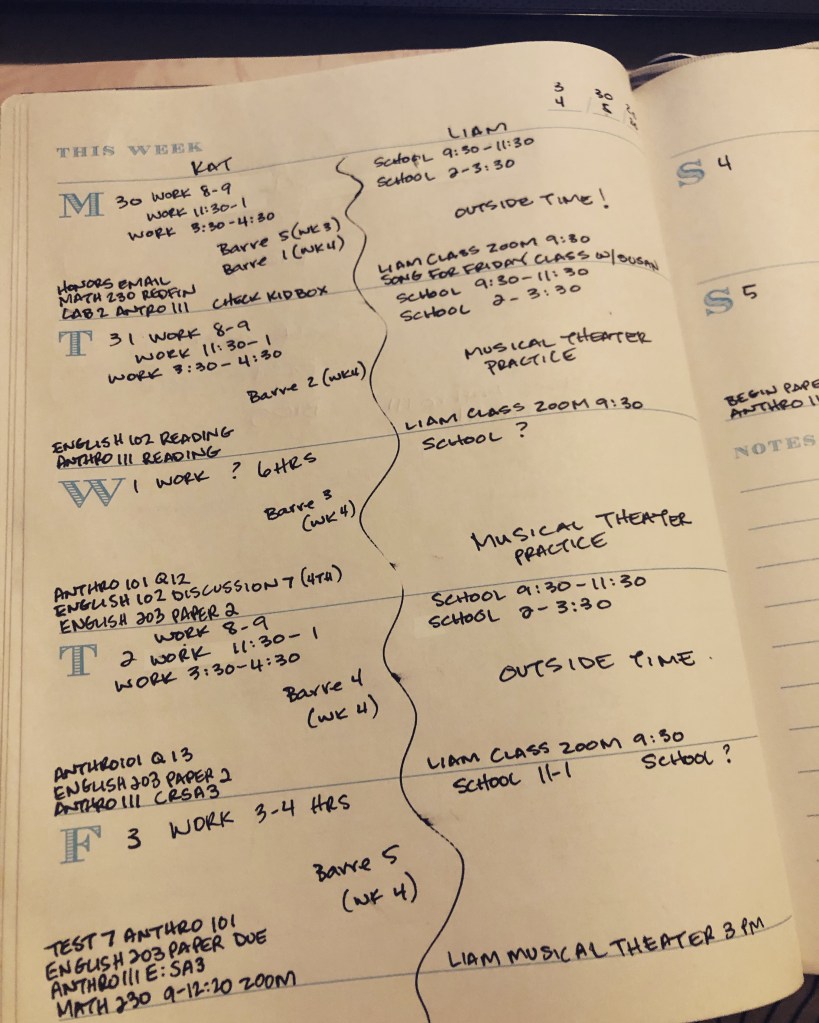 3 30
4 5
THIS WEEK
KAT
LIAM
M 30 WORK 8-9
WORK 11:30-1
WORK 3:30-4:30
Barre 5 (WK3)
Barre 1 (WK4)
HONORS EMAIL
MATH 230 REDFIN
LAB 2 ANTRO 111 CHECK KIDBOX
SCHOOL 9:30-11:30
SCHOOL 2-3:30
OUTSIDE TIME!
LIAM CLASS ZOOM 9:30
SONG FOR FRIDAY CLASS W/SUSAN
T 31 WORK 8-9
WORK 11:30-1
WORK 3:30-4:30
Barre 2 (WK4)
ENGLISH 102 READING
ANTHRO 111 READING
SCHOOL 9:30-11:30
SCHOOL 2-3:30
MUSICAL THEATER
PRACTICE
LIAM CLASS ZOOM 9:30
W 1 WORK ? 6HRS
Barre 3
(WK4)
ANTHRO 101 Q12
ENGLISH 102 DISCUSSION 7 (4TH)
ENGLISH 203 PAPER 2
SCHOOL ?
MUSICAL THEATER
PRACTICE
WORK 8-9
T 2 WORK 11:30-1
WORK 3:30-4:30
Barre 4
(WK 4)
ANTHRO101 Q13
ENGLISH 203 PAPER 2
ANTHRO 111 CRSA3
SCHOOL 9:30-11:30
SCHOOL 2-3:30
OUTSIDE TIME.
LIAM CLASS ZOOM 9:30
F 3 WORK 3-4 HRS
Barre 5
(WK 4)
TEST 7 ANTHRO 101
ENGLISH 203 PAPER DUE
ANTHRO111 E:SA3
MATH 230 9-12:20 ZOOM
SCHOOL 11-1 SCHOOL ?
LIAM MUSICAL THEATER 3PM
S 4
S 5
BEGIN PAPE
ANTHRO 11
NOTES